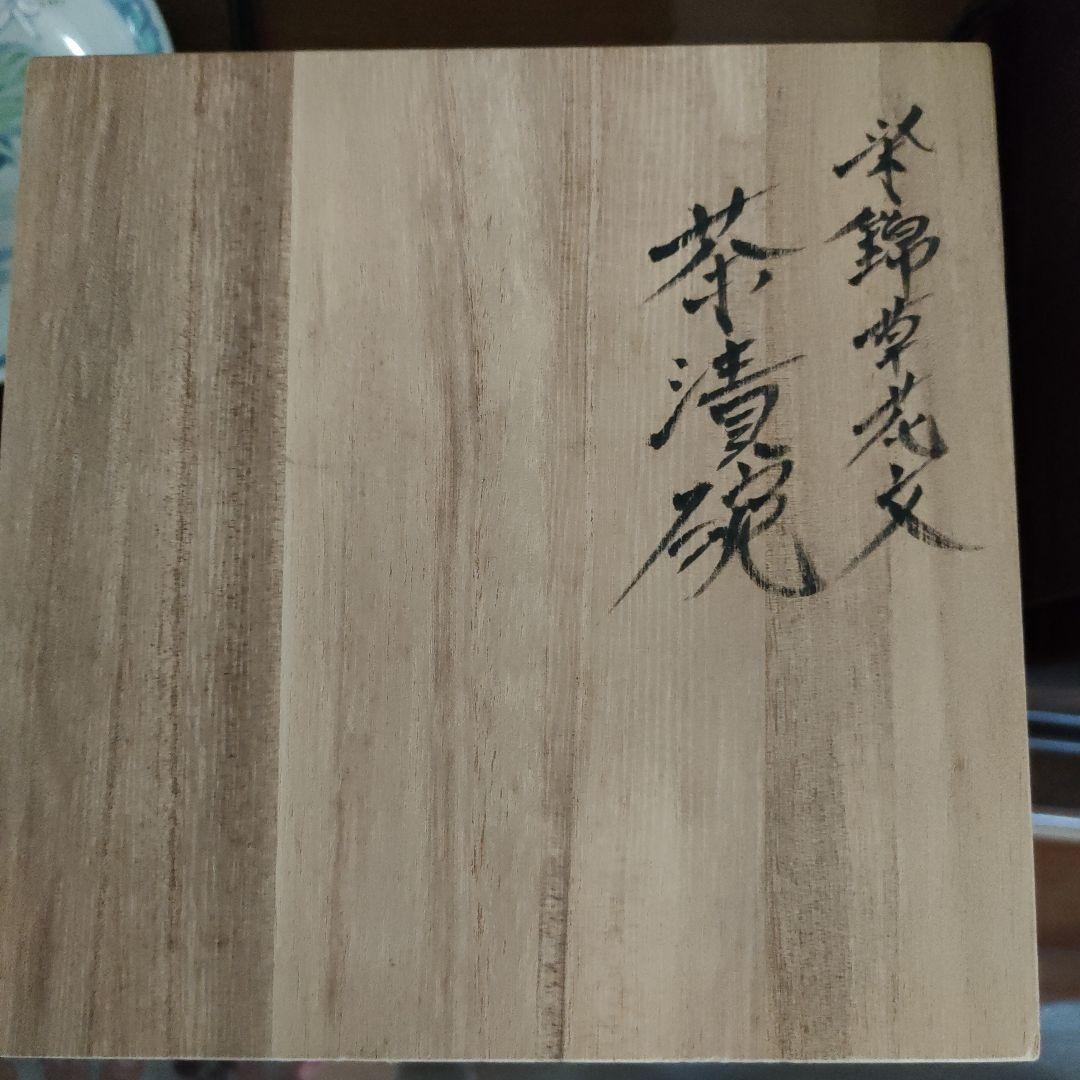 彩錦草花文
茶漬碗